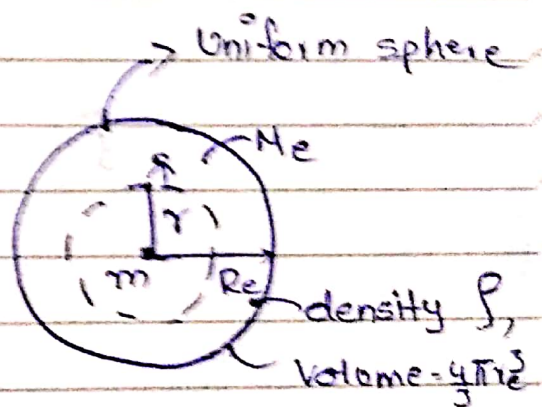 Uniform sphere
Me
r
m
Re
density ρ,
Volume = 4/3 πre³